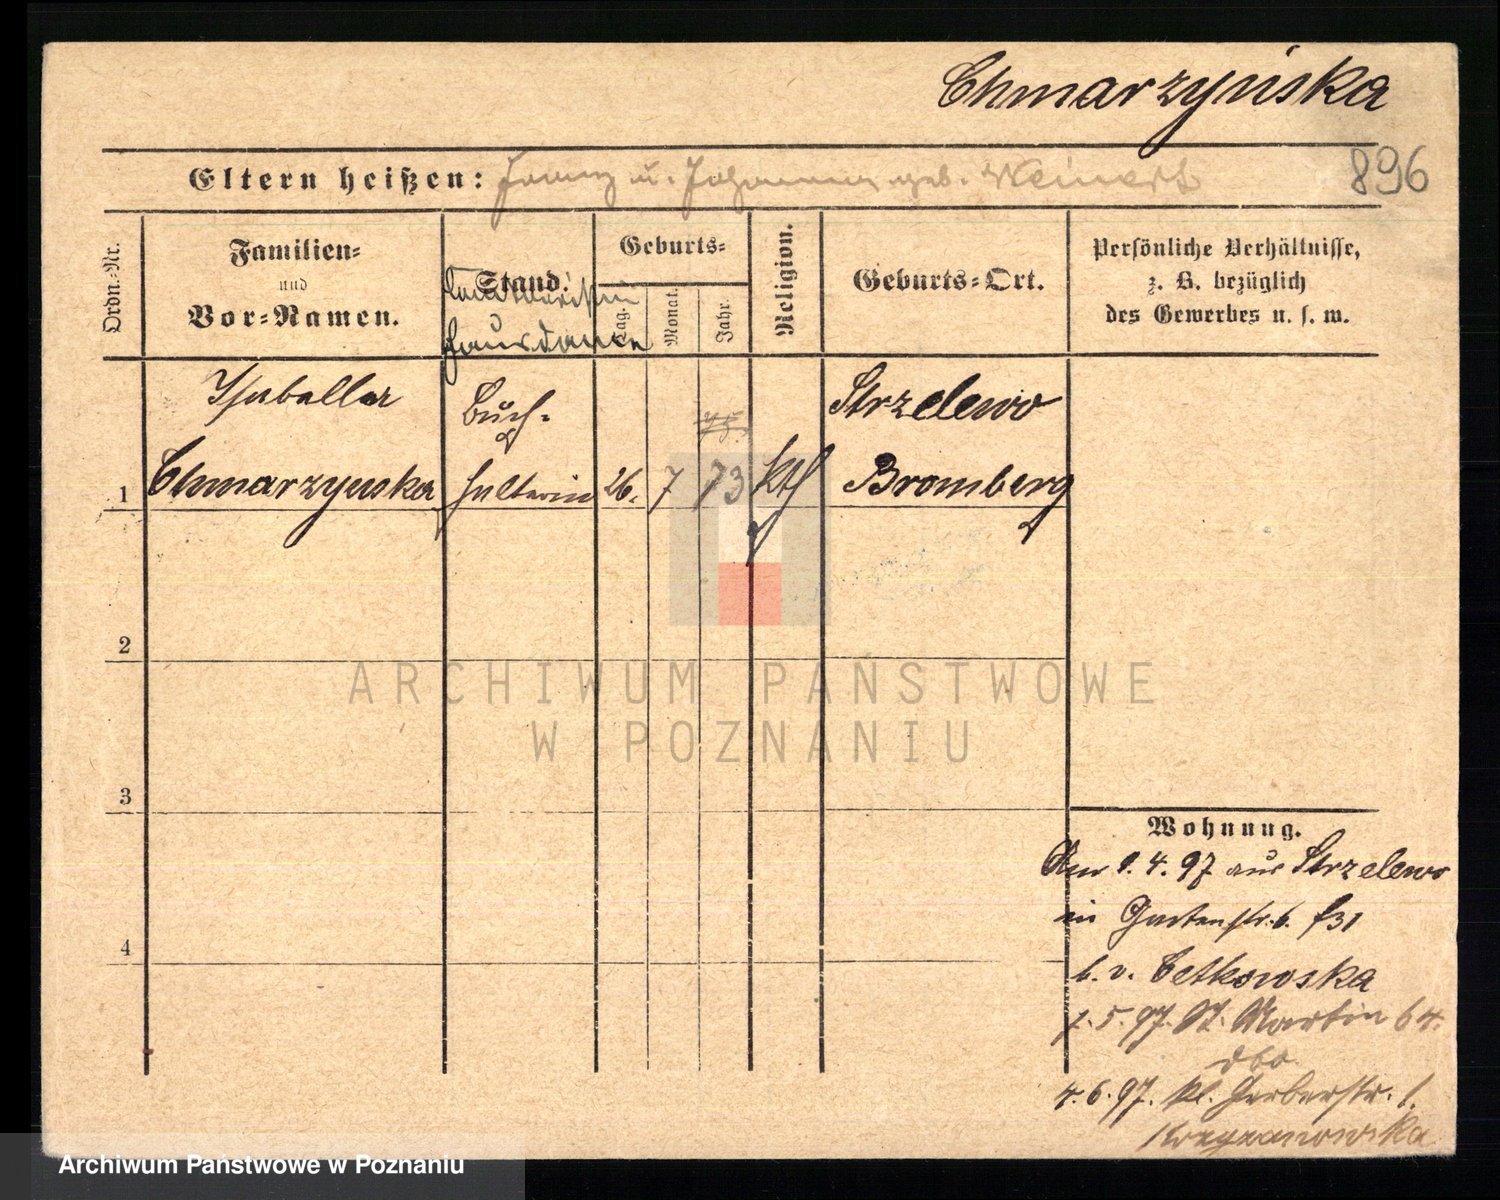 Chmarzyńska
896
Eltern heißen: Franz u. Johanna geb. Weinert
Ordn.-Nr.
Familien-
und
Vor-Namen.
Stand.
Geburts-
Tag.
Monat.
Jahr.
Religion.
Geburts-Ort.
Persönliche Verhältnisse,
z. B. bezüglich
des Gewerbes u. s. w.
Buch-
Strzelewo
1 Chmarzynska halterin 26. 7 73 kth Bromberg
2
3
4
Wohnung.
4. 97 aus Strzelewo
in Gartenstr. 6.
b. v. Cetkowska
1. 5. 97. St. Martin 64.
dto.
4. 6. 97. Kl. Gerberstr. 1.
Krzyzanowska
ARCHIWUM PAŃSTWOWE
W POZNANIU
Archiwum Państwowe w Poznaniu